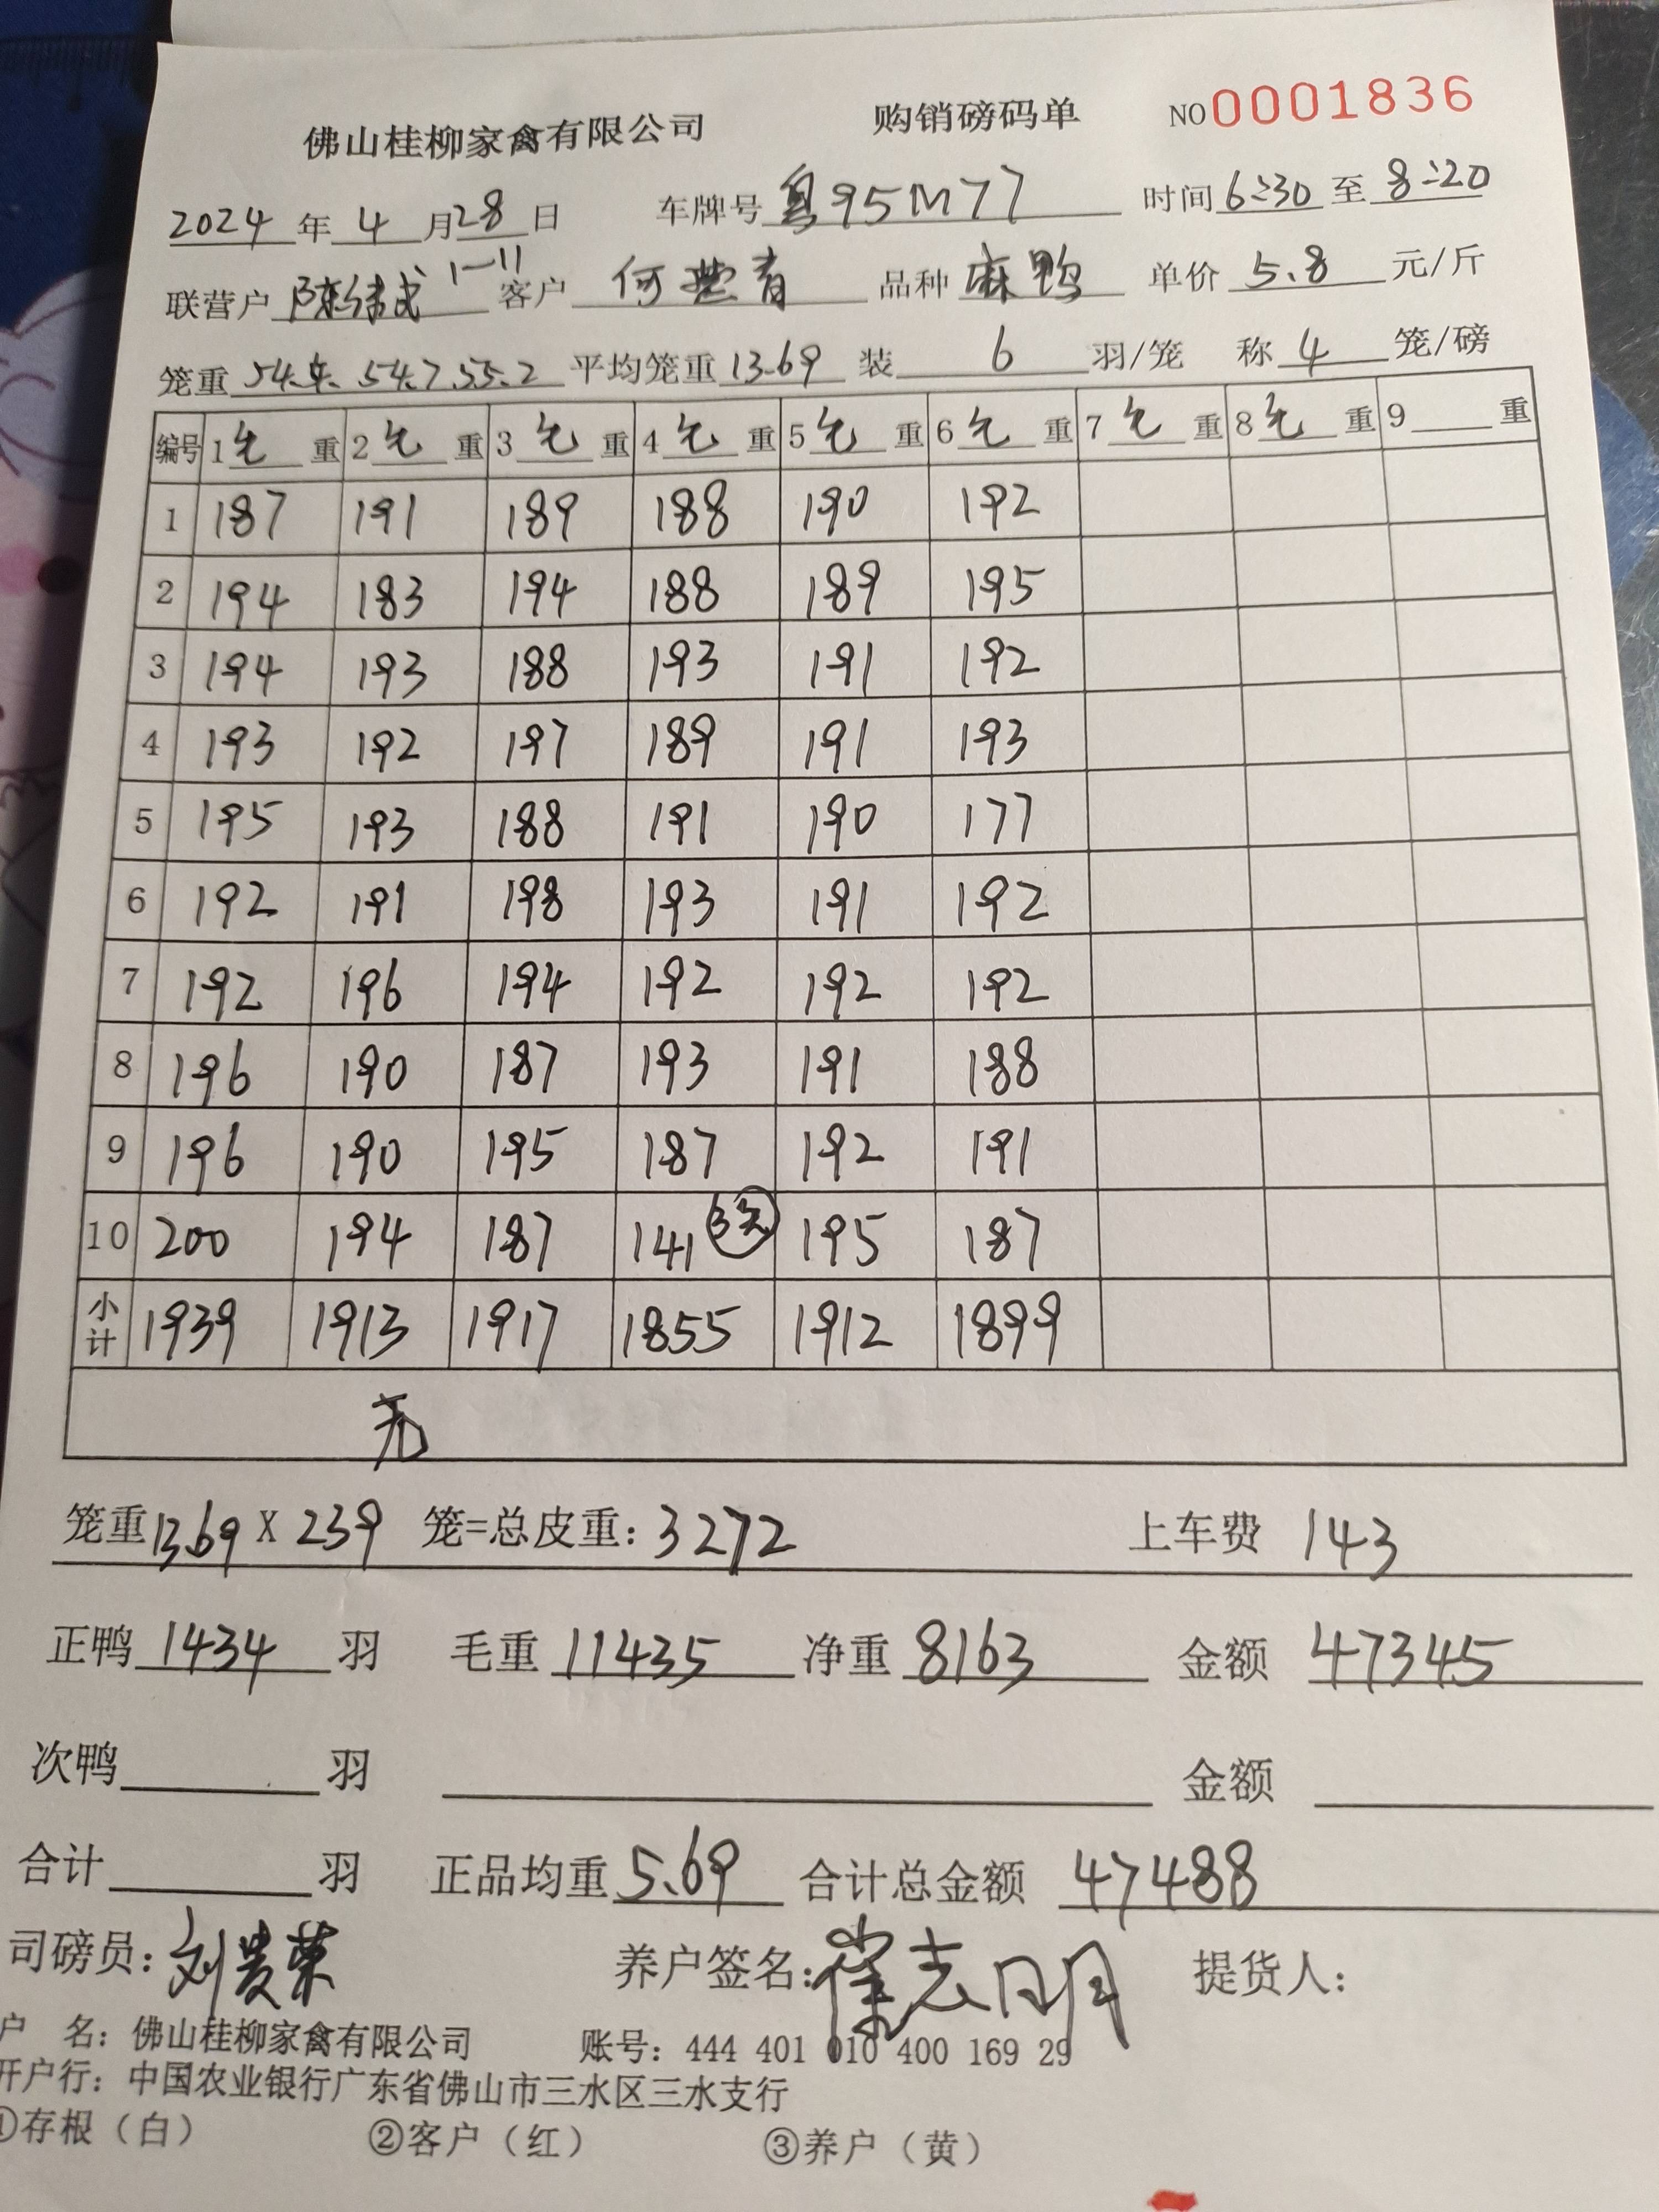 佛山桂柳家禽有限公司 购销磅码单 NO 0001836
2024 年 4 月 28 日 车牌号 粤95M77 时间 6:30 至 8:20
联营户 1-11 客户 何 青 品种 麻鸭 单价 5.8 元/斤
笼重 54.7 55.2 平均笼重 13.69 装 6 羽/笼 称 4 笼/磅
编号 1 毛 重 2 毛 重 3 毛 重 4 毛 重 5 毛 重 6 毛 重 7 毛 重 8 毛 重 9 重
1 187 191 189 188 190 192
2 194 183 194 188 189 195
3 194 193 188 193 191 192
4 193 192 197 189 191 193
5 195 193 188 191 190 177
6 192 191 198 193 191 192
7 192 196 194 192 192 192
8 196 190 187 193 191 188
9 196 190 195 187 192 191
10 200 194 187 141 195 187
小计 1939 1913 1917 1855 1912 1899
笼重 13.69 X 239 笼=总皮重: 3272 上车费 143
正鸭 1434 羽 毛重 11435 净重 8163 金额 47345
次鸭 羽 金额
合计 羽 正品均重 5.69 合计总金额 47488
司磅员: 刘贵荣 养户签名: 志明 提货人:
户 名: 佛山桂柳家禽有限公司 账号: 444 401 010 400 169 29
开户行: 中国农业银行广东省佛山市三水区三水支行
①存根（白） ②客户（红） ③养户（黄）